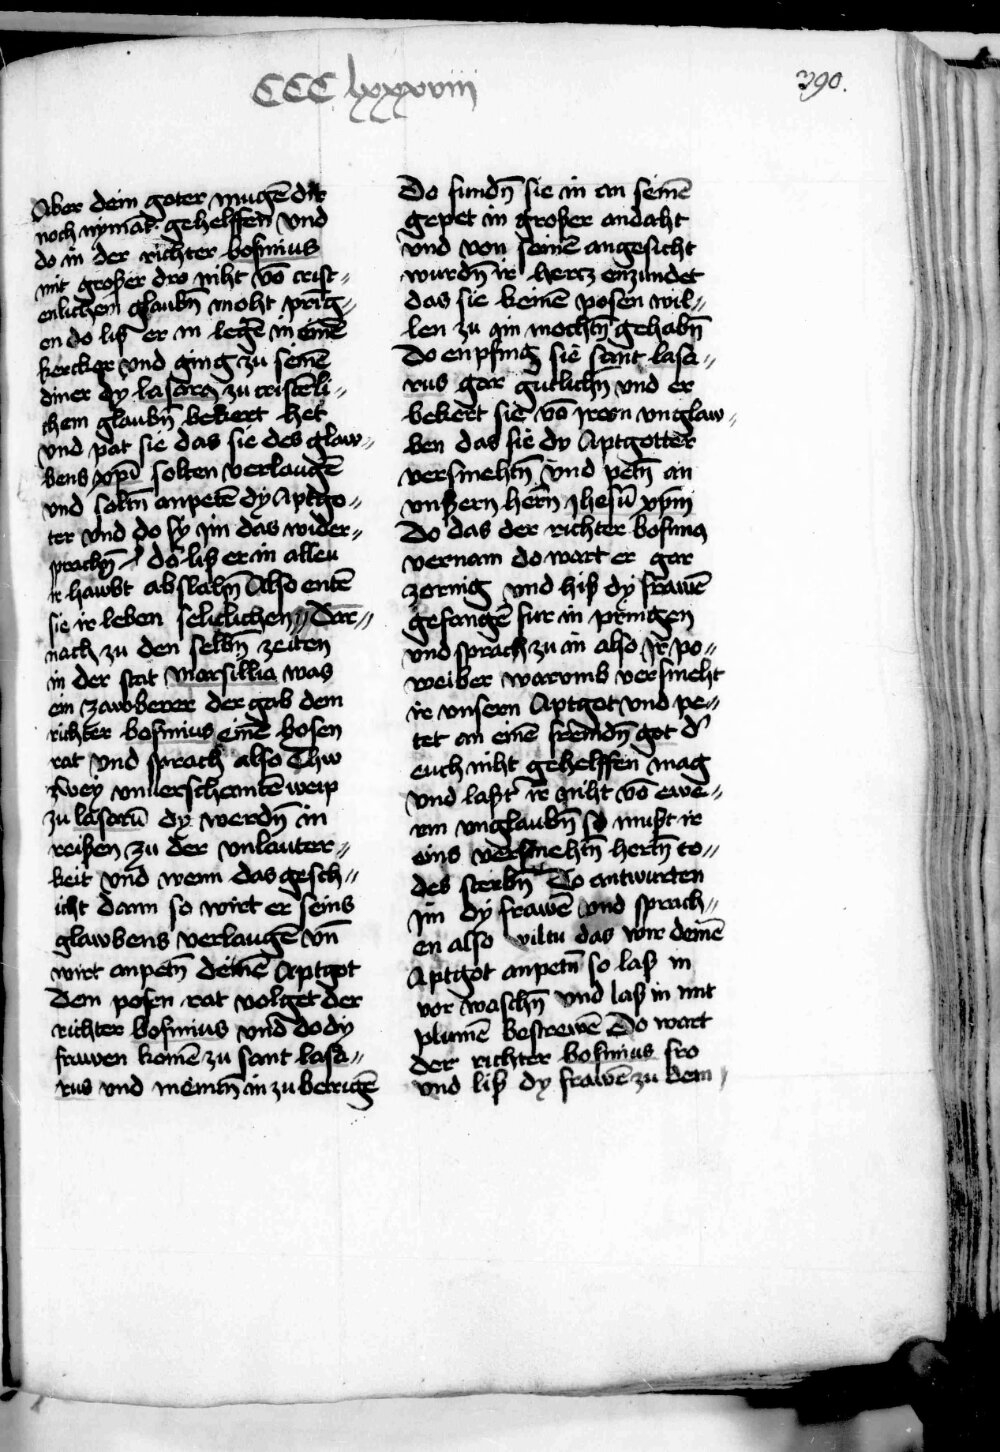 CCC lxxxviii
390.
Aber dein goter mugē dir
noch nymāt gehelffen vnd
do in der richter bosinius
mit großer dro niht vō crist〃
enlichem glaubn̄ moht pring〃
en do liß er in legē in einē
kercker vnd ging zu seinē
diner dy lasarꝫ zu cristēli〃
chem glaubn̄ bekert het
vnd pat sie das sie des glaw〃
bens xp̄i solten verlaugē
vnd soltn̄ anpetē dy Aptgo〃
ter vnd do sy im das wider〃
prachn̄ do liß er in alleu
ir hawbt abslahn̄ Also entē
sie ir leben seliclichen〃 Dar〃
nach zu den selbn̄ zeiten
in der stat Marsillia was
ein zawberer der gab dem
richter bosinius einē bosen
rat vnd sprach also Thw
zwey vnuerschemtē weip
zu lasarū dy werdn̄ in
reißen zu der vnlauter〃
keit vnd wenn das gesch〃
iht dann so wirt er seins
glawbens verlaugē vn̄
wirt anpetn̄ deinē Aptgot
Dem posen rat volget der
richter bosinius vnd do dy
frawen komē zu sant lasa〃
rus vnd meintn̄ in zu betrigē
Do fundn̄ sie in an seinē
gepet in großer andaht
vnd von seinē angesicht
wurdn̄ ir hertz enzundet
das sie keinē posen wil〃
len zu im mochtn̄ gehabn̄
Do enpfing sie sant lasa〃
rus gar gutlichn̄ vnd er
bekert sie vō irem vnglaw〃
ben das sie dy Aptgotter
versmehtn̄ vnd petn̄ an
vnßern hern̄ Jhesū xp̄m
Do das der richter bosinꝫ
vernam do wart er gar
zornig vnd hiß dy frawē
gefangē fur in pringen
vnd sprach zu in also Ir po〃
weiber warumb versmeht
ir vnsern Aptgot vnd pe〃
tet an einē fremdn̄ got d'
euch niht gehelffen mag
vnd laßt ir niht vō ewe〃
rm vnglaubn̄ so mußt ir
eins versmehtn̄ hertn̄ to〃
des sterbn̄ Do antwurten
jm dy frawē vnd sprach〃
en also wiltu das wir deinē
Aptgot anpetn̄ so laß in
vor waschn̄ vnd laß in mit
plumē bestrewē Do wart
der richter bosinius fro
vnd liß dy frawē zu dem